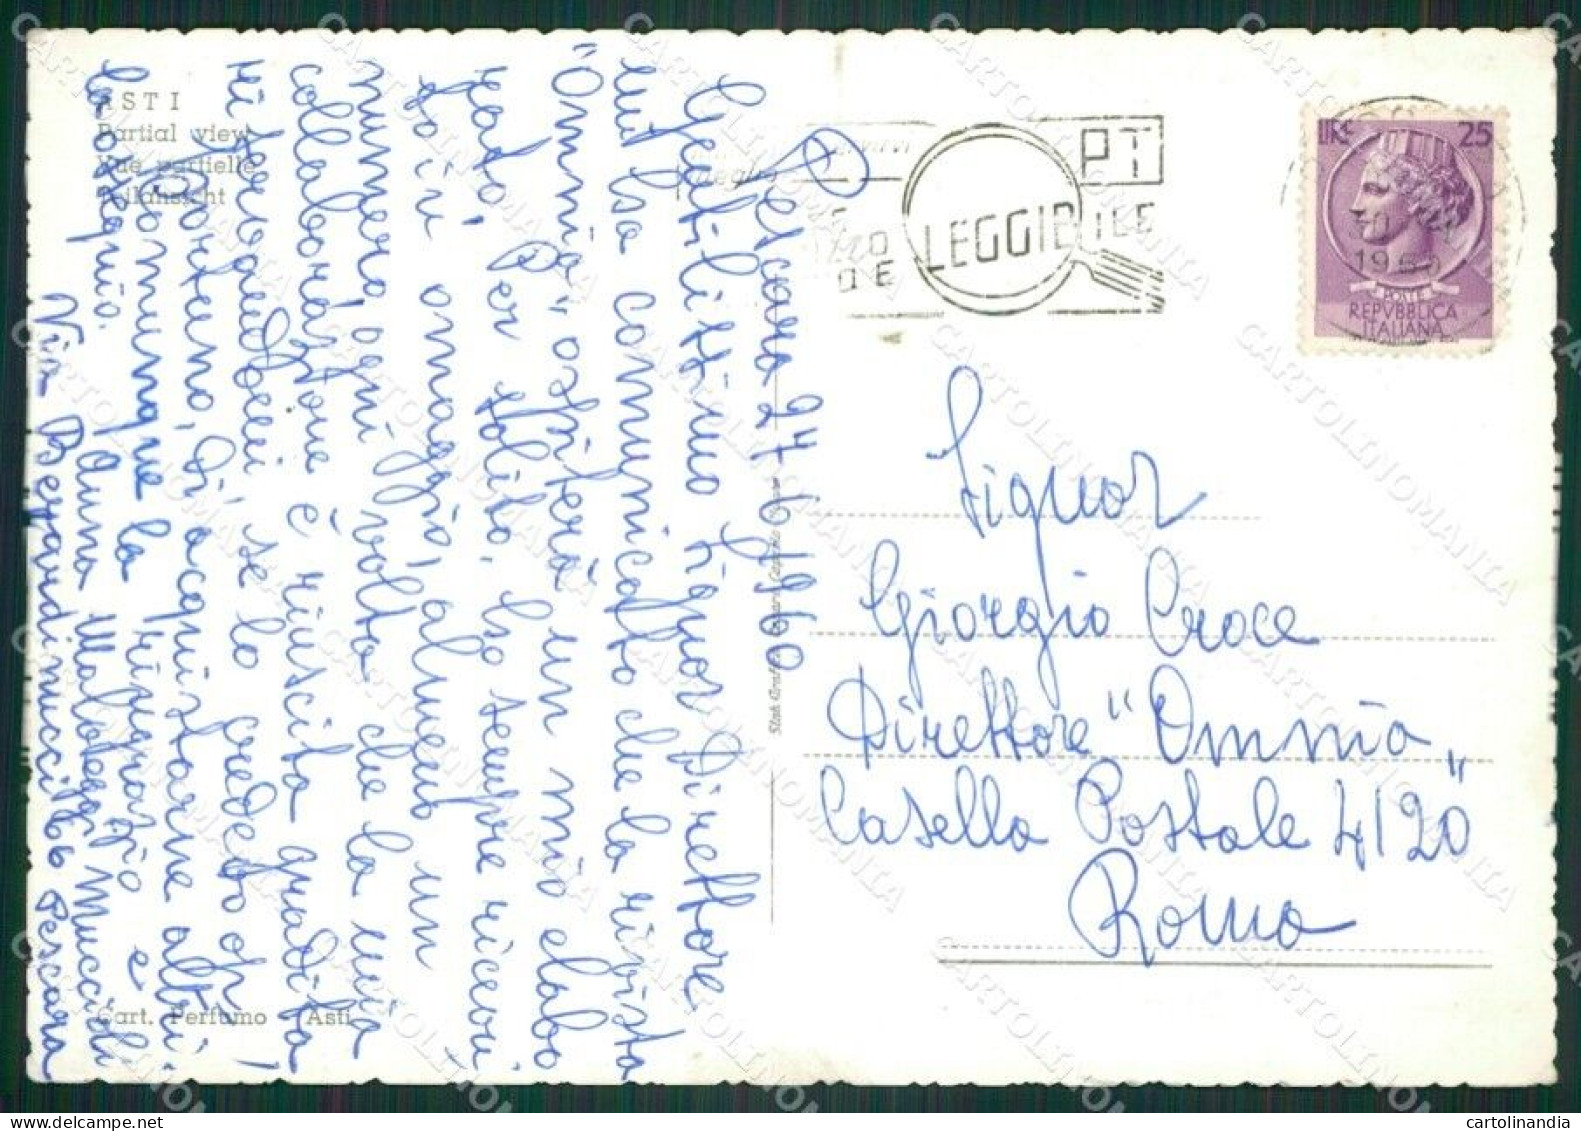 ASTI
Partial view
Vue partielle
Teilansicht
Pescara 27-6-1960
Gentilissimo Signor Direttore
mi ha comunicato che la rivista
"Omnia" ospiterà un mio elabo
rato. Per solito, ho sempre ricevu
to in omaggio, almeno un
numero, ogni volta che la mia
collaborazione è riuscita gradita
Mi
se lo credete op
portuno, di acquistarne altri.
Comunque la ringrazio e
la ossequio.
Anna Malatesta Muccioli
Via Bernardi 66 Pescara
Cart. Perfumo Asti
PT
LEGGIBILE
LIRE 25
POSTE
REPVBBLICA
ITALIANA
1960
Signor
Giorgio Croce
Direttore "Omnia"
Casella Postale 4120
Roma
CARTOLINOMANIA
cartolinandia